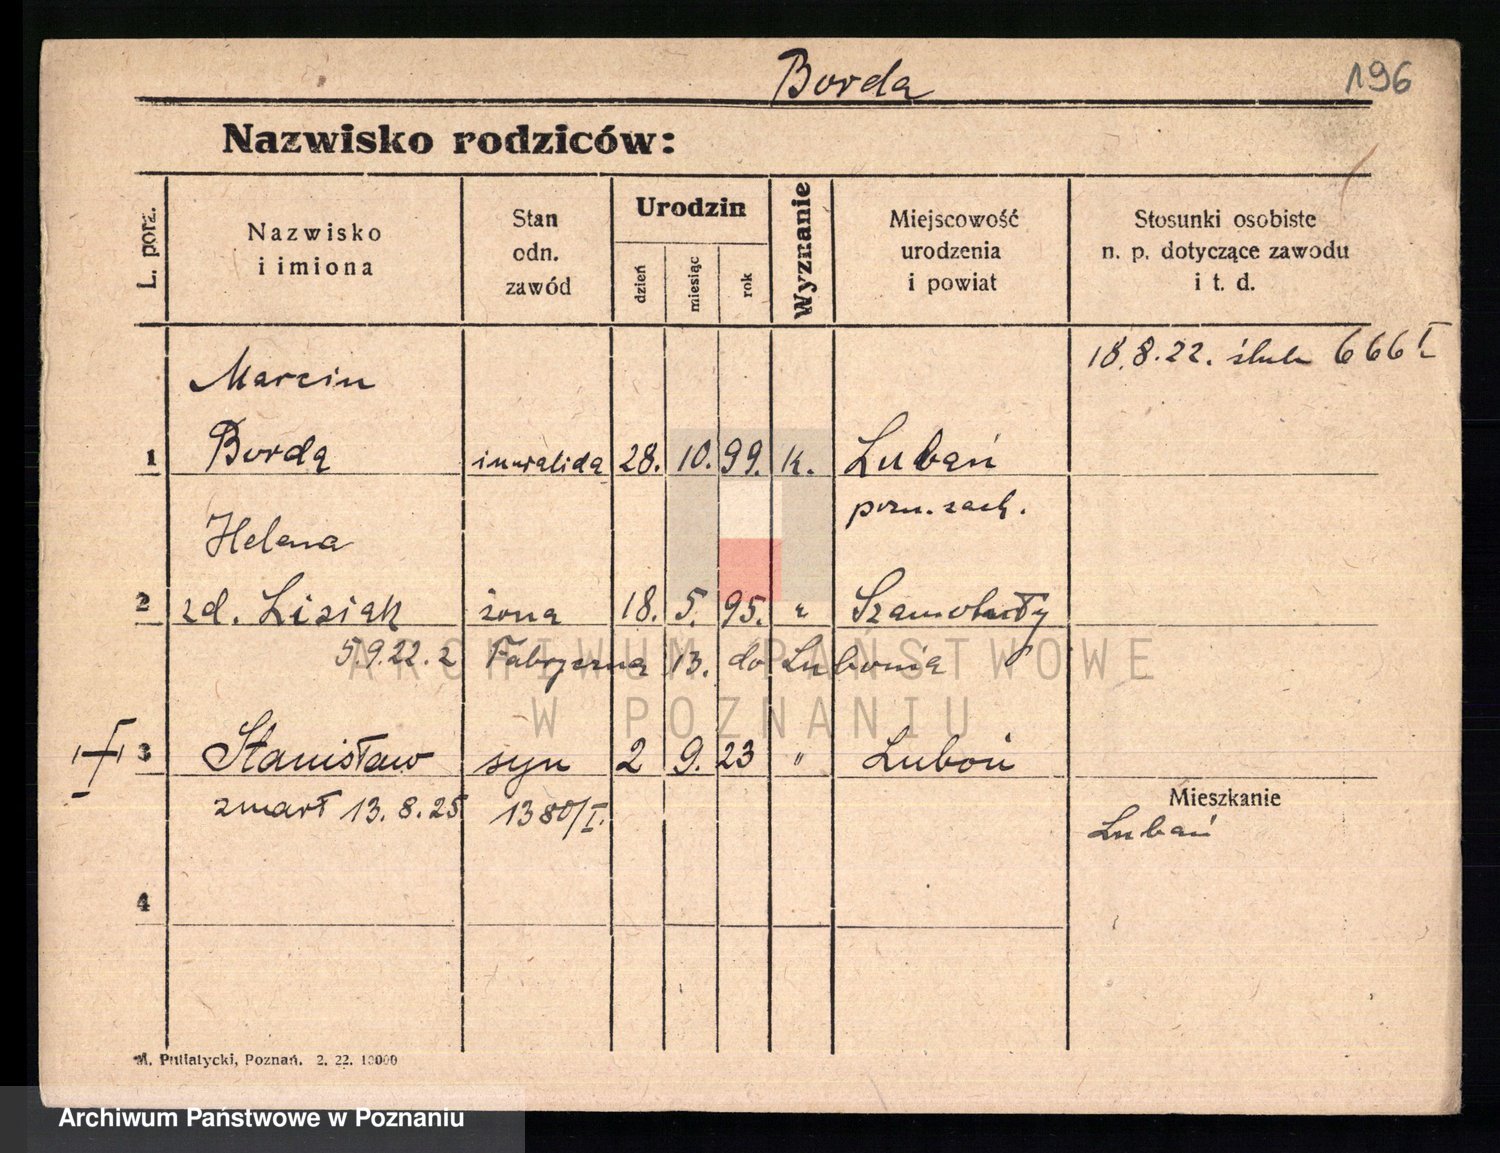 Borda
196
Nazwisko rodziców:
L. porz.
Nazwisko
i imiona
Stan
odn.
zawód
Urodzin
dzień
miesiąc
rok
Wyznanie
Miejscowość
urodzenia
i powiat
Stosunki osobiste
n. p. dotyczące zawodu
i t. d.
18.8.22. ślub 666 I
Marcin
1 Borda inwalida 28. 10. 99. k. Lubań
pozn. zach.
Helena
2 zd. Lisiak żona 18. 5. 95. " Szamotuły
5.9.22. z Fabryczna 13. do Lubonia
3 Stanisław syn 2 9. 23 " Luboń
zmarł 13.8.25 1380/I.
Mieszkanie
Lubań
4
M. Putiatycki, Poznań. 2. 22. 10000
ARCHIWUM PAŃSTWOWE
W POZNANIU
Archiwum Państwowe w Poznaniu